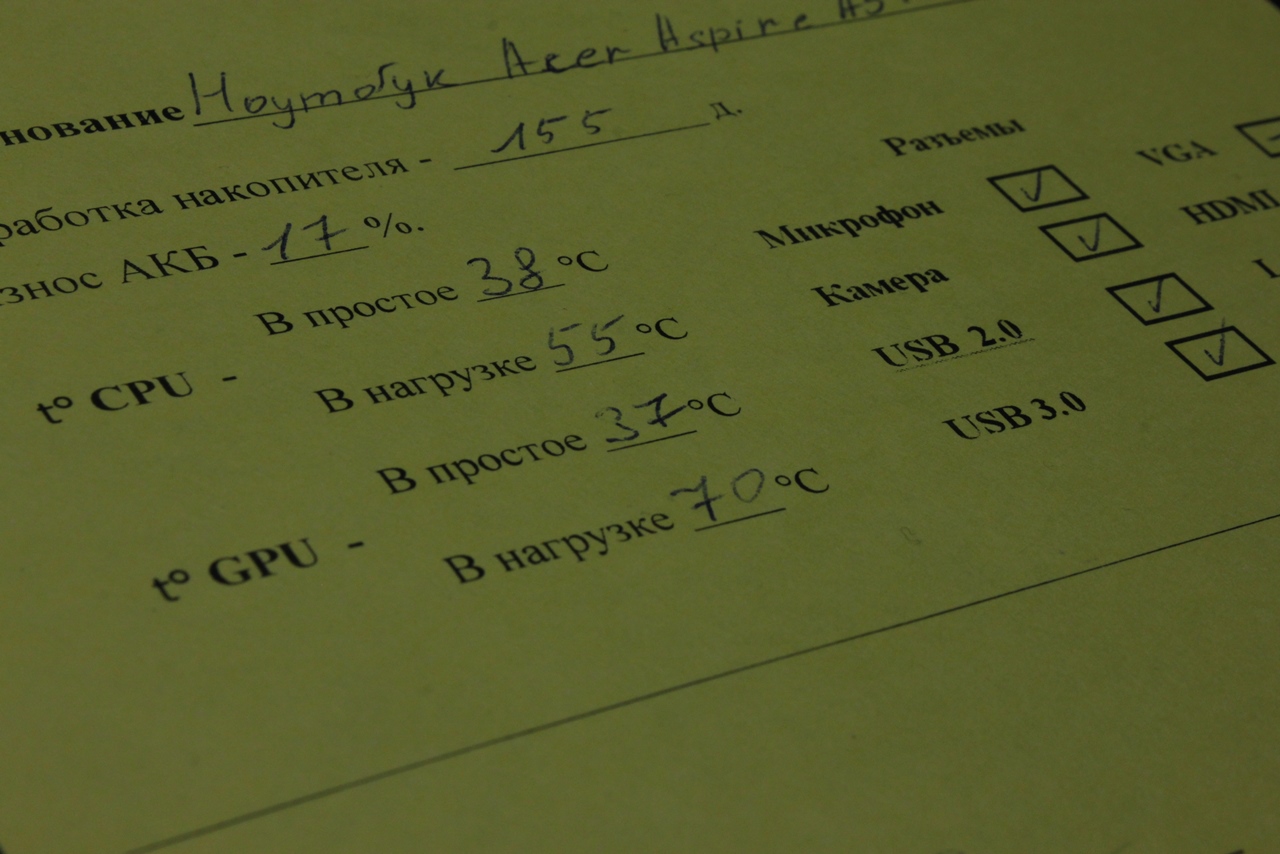 нование Ноутбук Acer Aspire A3
работка накопителя - 155 д.
знос АКБ - 17 %.
t° CPU - В простое 38 °C
В нагрузке 55 °C
t° GPU - В простое 37 °C
В нагрузке 70 °C
Разъемы
Микрофон ✓
Камера ✓
USB 2.0 ✓
USB 3.0 ✓
VGA -
HDMI